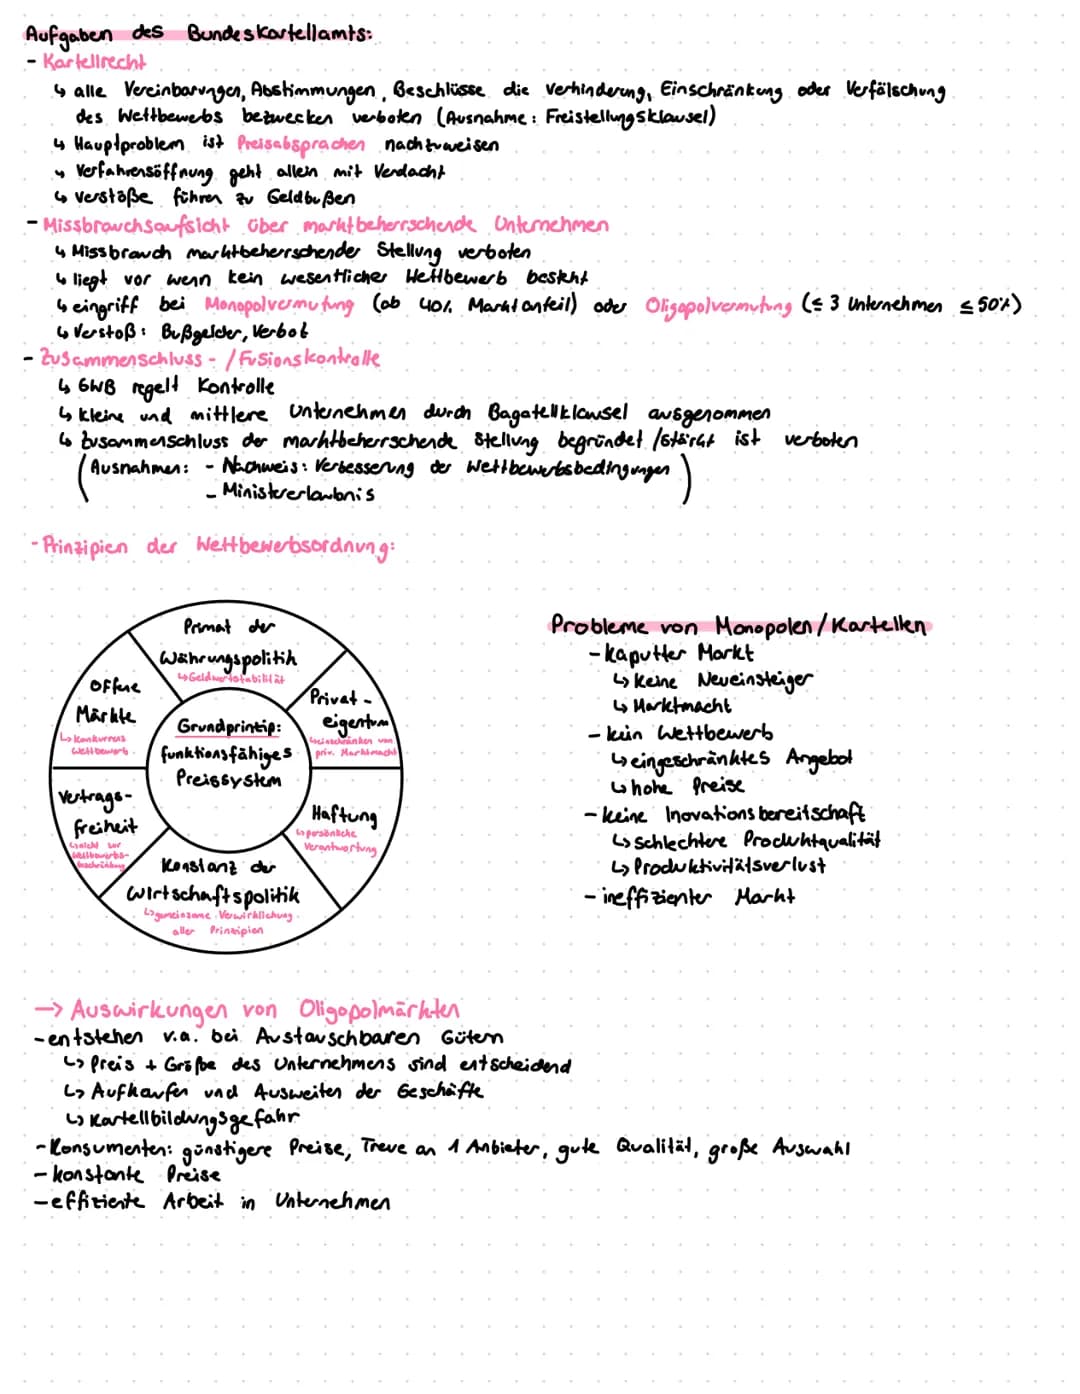 Aufgaben des Bundeskartellamts:
- Kartellrecht
↳ alle Vereinbarungen, Abstimmungen, Beschlüsse die Verhinderung, Einschränkung oder Verfälschung
des Wettbewerbs bezwecken verboten (Ausnahme: Freistellungsklausel)
↳ Hauptproblem ist Preisabsprachen nachzuweisen
↳ Verfahrensöffnung geht allein mit Verdacht
↳ Verstöße führen zu Geldbußen
- Missbrauchsaufsicht über marktbeherrschende Unternehmen
↳ Missbrauch marktbeherrschender Stellung verboten
↳ liegt vor wenn kein wesentlicher Wettbewerb besteht
↳ eingriff bei Monopolvermutung (ab 40% Marktanteil) oder Oligopolvermutung (≤ 3 Unternehmen ≤ 50%)
↳ Verstoß: Bußgelder, Verbot
- Zusammenschluss- / Fusionskontrolle
↳ GWB regelt Kontrolle
↳ kleine und mittlere Unternehmen durch Bagatellklausel ausgenommen
↳ Zusammenschluss der marktbeherrschende Stellung begründet / stärkt ist verboten
(Ausnahmen: - Nachweis: Verbesserung der Wettbewerbsbedingungen
- Ministererlaubnis)
- Prinzipien der Wettbewerbsordnung:
Primat der
Währungspolitik
↳ Geldwertstabilität
Privat-
eigentum
↳ einschränken von
priv. Marktmacht
Haftung
↳ persönliche
Verantwortung
Konstanz der
Wirtschaftspolitik
↳ gemeinsame Verwirklichung
aller Prinzipien
Vertrags-
freiheit
↳ nicht zur
Wettbewerbs-
beschränkung
Offene
Märkte
↳ Konkurrenz
Wettbewerb
Grundprinzip:
funktionsfähiges
Preissystem
Probleme von Monopolen/Kartellen
- kaputter Markt
↳ keine Neueinsteiger
↳ Marktmacht
- kein Wettbewerb
↳ eingeschränktes Angebot
↳ hohe Preise
- keine Inovationsbereitschaft
↳ schlechtere Produktqualität
↳ Produktivitätsverlust
- ineffizienter Markt
→ Auswirkungen von Oligopolmärkten
- entstehen v.a. bei Austauschbaren Gütern
↳ Preis + Größe des Unternehmens sind entscheidend
↳ Aufkaufen und Ausweiten der Geschäfte
↳ Kartellbildungsgefahr
- Konsumenten: günstigere Preise, Treue an 1 Anbieter, gute Qualität, große Auswahl
- konstante Preise
- effiziente Arbeit in Unternehmen